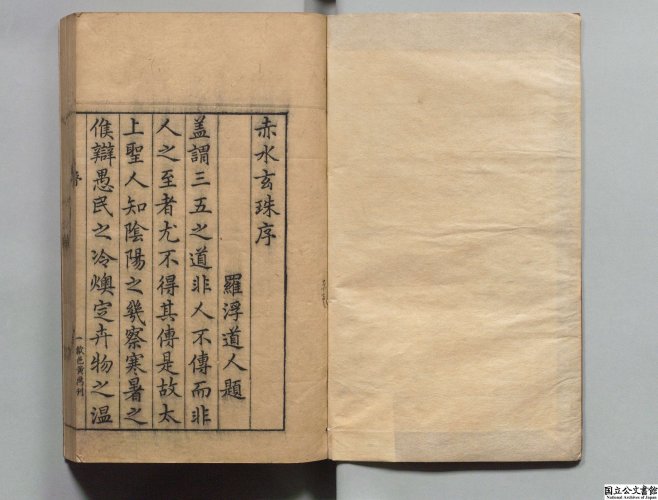 赤水玄珠序
羅浮道人題
盖謂三五之道非人不傳而非
人之至者尤不得其傳是故太
上聖人知陰陽之幾察寒暑之
候辯愚民之冷燠定卉物之温
序
一
歙邑黄鼎刊
国立公文書館
National Archives of Japan